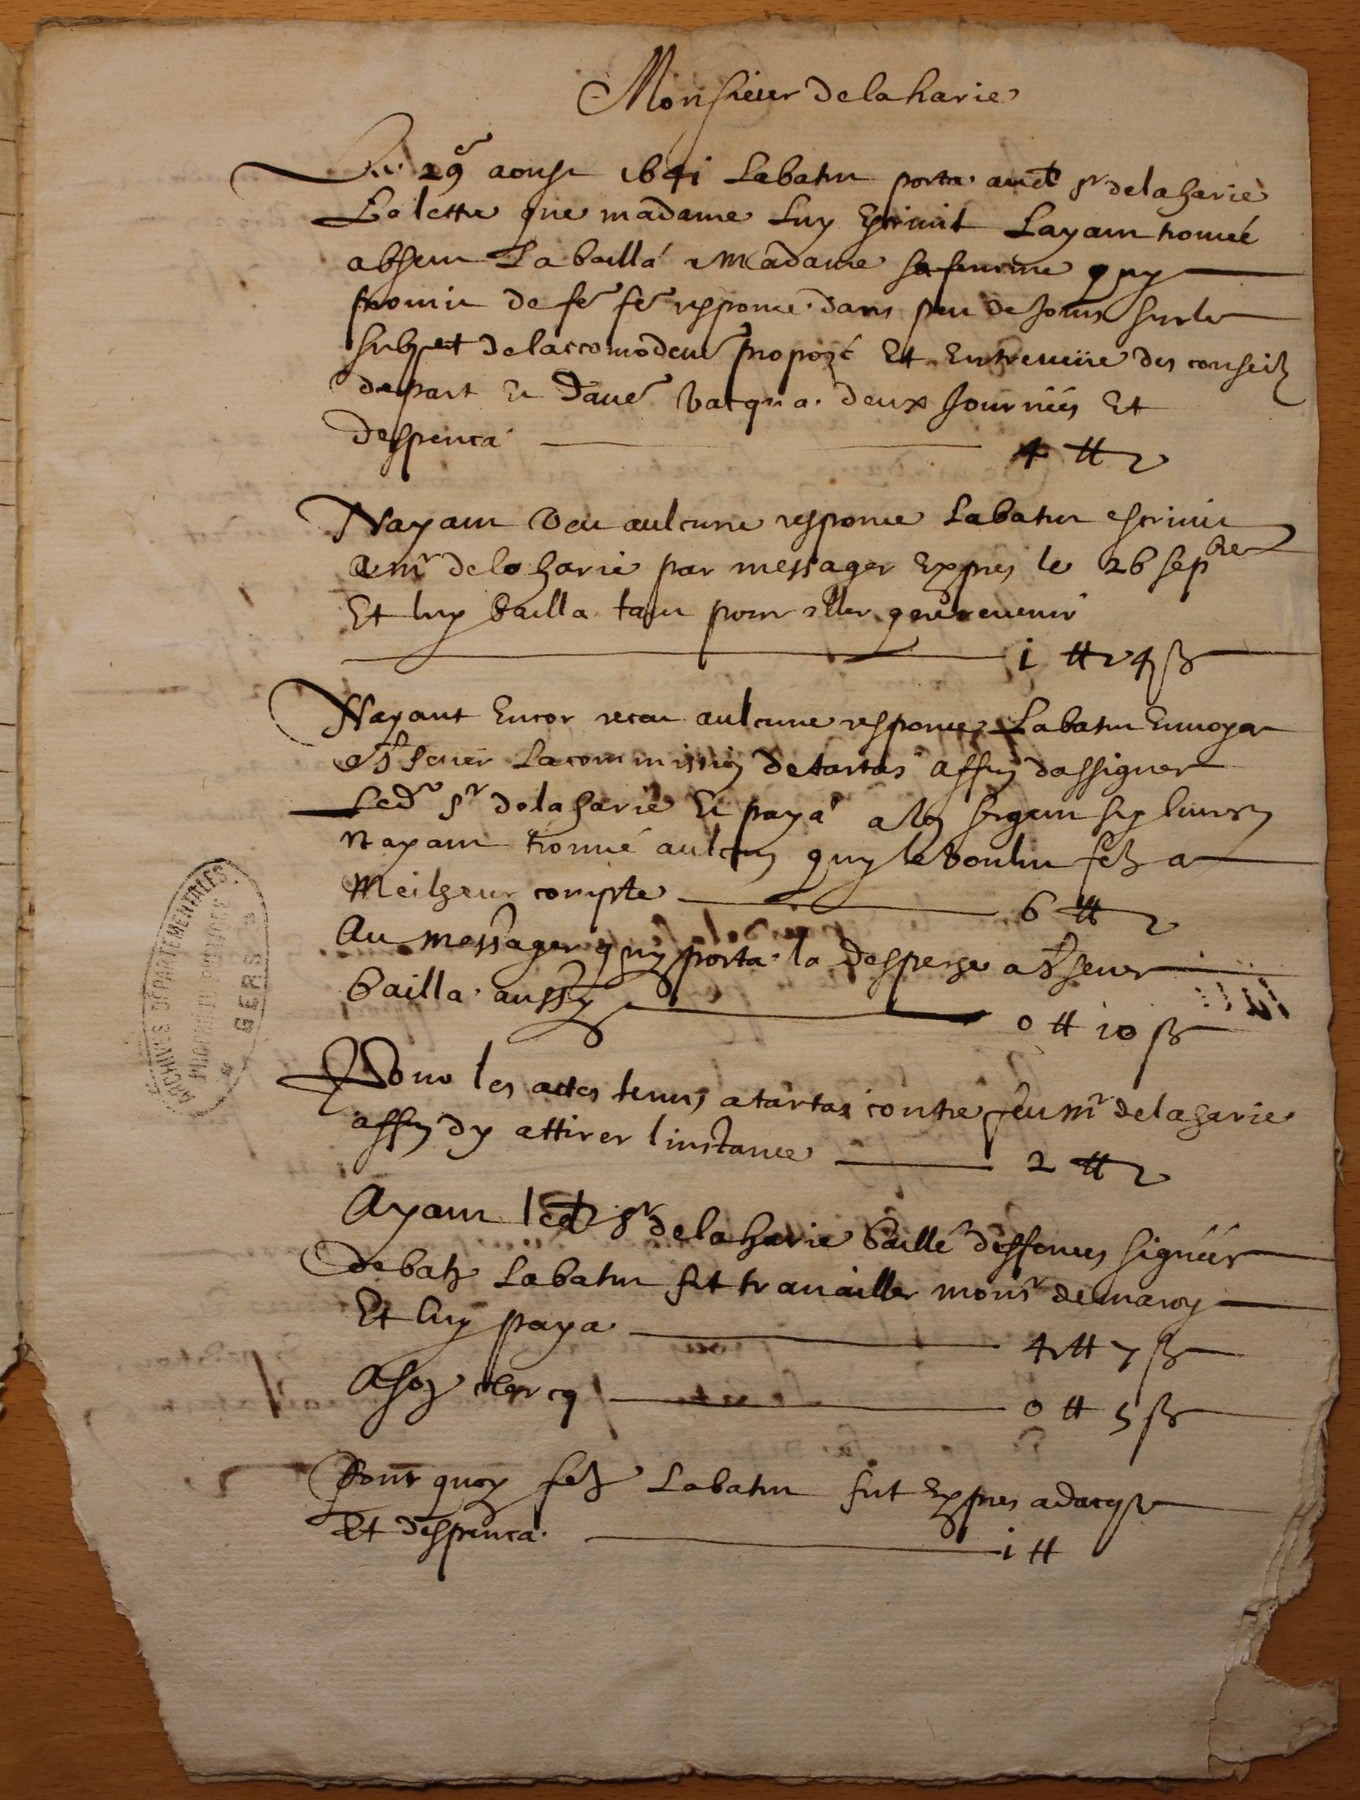 Monsieur delaharie
Le 29e aoust 1641 Labatut porta audt sr delaharie
La lettre que madame luy escrivit Layant trouvé
absent La bailla a Madame sa femme quy
promit de fe fe responce dans peu de Jours sur le
subject delaccomodemt propozé Et Entreveüe des conseilz
depart Et Vacqua deux Journées Et
despença 4 tt
Nayant veu aulcune responce Labatut escrivit
a mr delaharie par messager Expres le 26 sepbre
Et luy bailla tant pour aller que revenir
1 tt 4 ß
Nayant Encor receu aulcune responce Labatut Envoya
a St sever La commission detartas affin dassigner
Ledt sr delaharie Et paya a un sergent six livres
nayant trouvé aulcun quy le voulut fe a
Meilheur compte 6 tt
Au messager quy porta la despeche a St sever
bailla aussy 0 tt 10 ß
Pour les actes tenus a tartas contre feu mr delaharie
affin dy attirer linstance 2 tt
Ayant ledt sr delaharie baillé deffences signées
debatz Labatut fit travailler monsr
Et luy paya 4 tt 7 ß
A son clercq 0 tt 5 ß
Pour quoy Labatut fut Expres
Et despença 1 tt
ARCHIVES DÉPARTEMENTALES
PROPRIÉTÉ PUBLIQUE
GERS